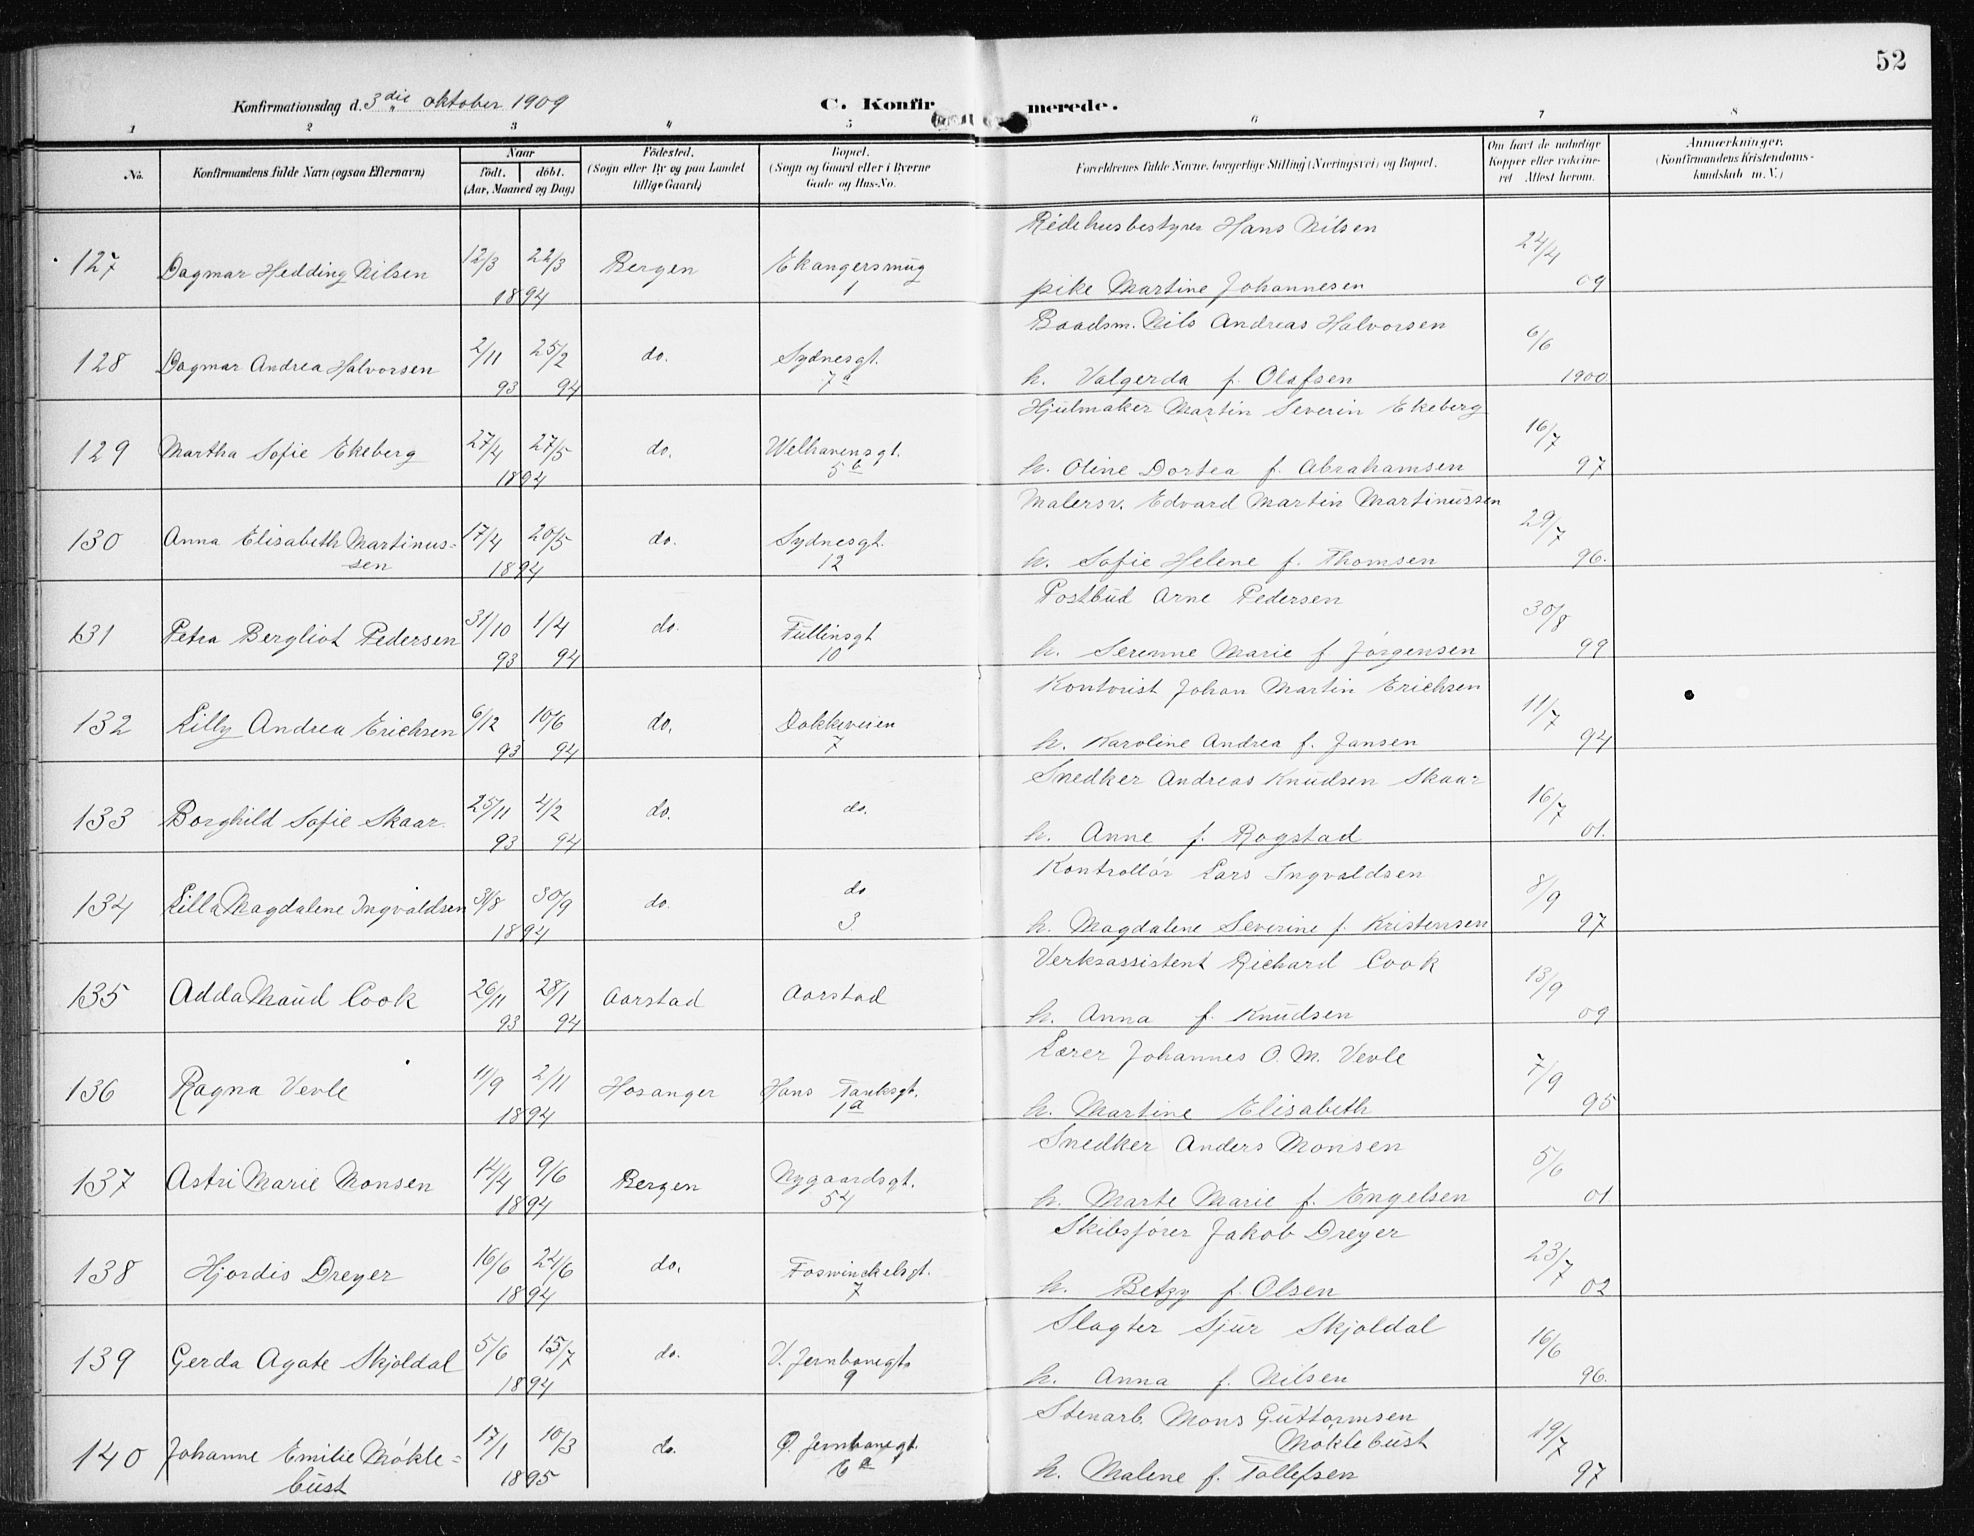 52
Konfirmationsdag d. 3die oktober 1909 C. Konfirmerede.
1 2 3 4 5 6 7 8
No. Konfirmandens fulde Navn (ogsaa Efternavn) Naar født. døbt. (Aar, Maaned og Dag) Fødested. (Sogn eller By og paa Landet tillige Gaard) Bopæl. (Sogn og Gaard eller i Byerne Gade og Hus-No. Forældrenes fulde Navne, borgerlige Stilling (Næringsvei) og Bopæl. Om havt de naturlige Kopper eller vakcineret Attest herom. Anmærkninger. (Konfirmandens Kristendomskundskab m. V.)
Ridehusbestyrer Hans Nilsen
127 Dagmar Hedding Nilsen 12/3 22/3 Bergen Ekangersmug 24/4
1894 1 pike Martine Johannesen 09
Baadsm. Nils Andreas Halvorsen
128 Dagmar Andrea Halvorsen 2/11 25/2 do. Sydnesgt. 6/6
93 94 7a h. Valgerda f. Olafsen 1900
Hjulmaker Martin Severin Ekeberg
129 Martha Sofie Ekeberg 27/4 27/5 do. Welhavensgt. 16/7
1894 5b h. Oline Dortea f. Abrahamsen 97
Malersv. Edvard Martin Martinussen
130 Anna Elisabeth Martinus- 17/4 20/5 do. Sydnesgt. 29/7
sen 1894 12 h. Sofie Helene f. Thomsen 96.
Postbud Arne Pedersen
131 Petra Bergliot Pedersen 31/10 1/4 do. Fullinsgt 30/8
93 94 10 h. Serenne Marie f Jørgensen 99
Kontorist Johan Martin Erichsen
132 Lilly Andrea Erichsen 6/12 10/6 do. Dokkeveien 11/7
93 94 7 h. Karoline Andrea f. Jansen 94
Snedker Andreas Knudsen Skaar
133 Borghild Sofie Skaar. 25/11 4/2 do. do. 16/7
93 94 h. Anne f. Rogstad 01.
Kontrollør Lars Ingvaldsen
134 Lilla Magdalene Ingvaldsen 31/8 30/9 do. do 8/9
1894 3. h. Magdalene Severine f. Kristensen 97
Verksassistent Richard Cook
135 Adda Maud Cook 26/11 28/1 Aarstad Aarstad 13/9
93 94 h. Anna f. Knudsen 09
Lærer Johannes O. M. Vevle
136 Ragna Vevle 11/9 2/11 Hosanger Hans Tanksgt. 7/9
1894 1a h. Martine Elisabeth 95
Snedker Anders Monsen
137 Astri Marie Monsen 14/4 9/6 Bergen Nygaardsgt. 5/6
1894 54 h. Marte Marie f. Engelsen 01
Skibsfører Jakob Dreyer
138 Hjordis Dreyer 16/6 24/6 do. Foswinckelsgt. 23/7
1894 7 h. Betzy f. Olsen 02
Slagter Sjur Skjoldal
139 Gerda Agate Skjoldal 5/6 15/7 do. V. Jernbanegt. 16/6
1894 9 h. Anna f. Nilsen 96.
Stenarb. Mons Guttormsen
140 Johanne Emilie Møkle- 17/1 10/3 do. Ø. Jernbanegt. Møklebust 19/7
bust 1895 6a h. Malene f. Tollefsen 97